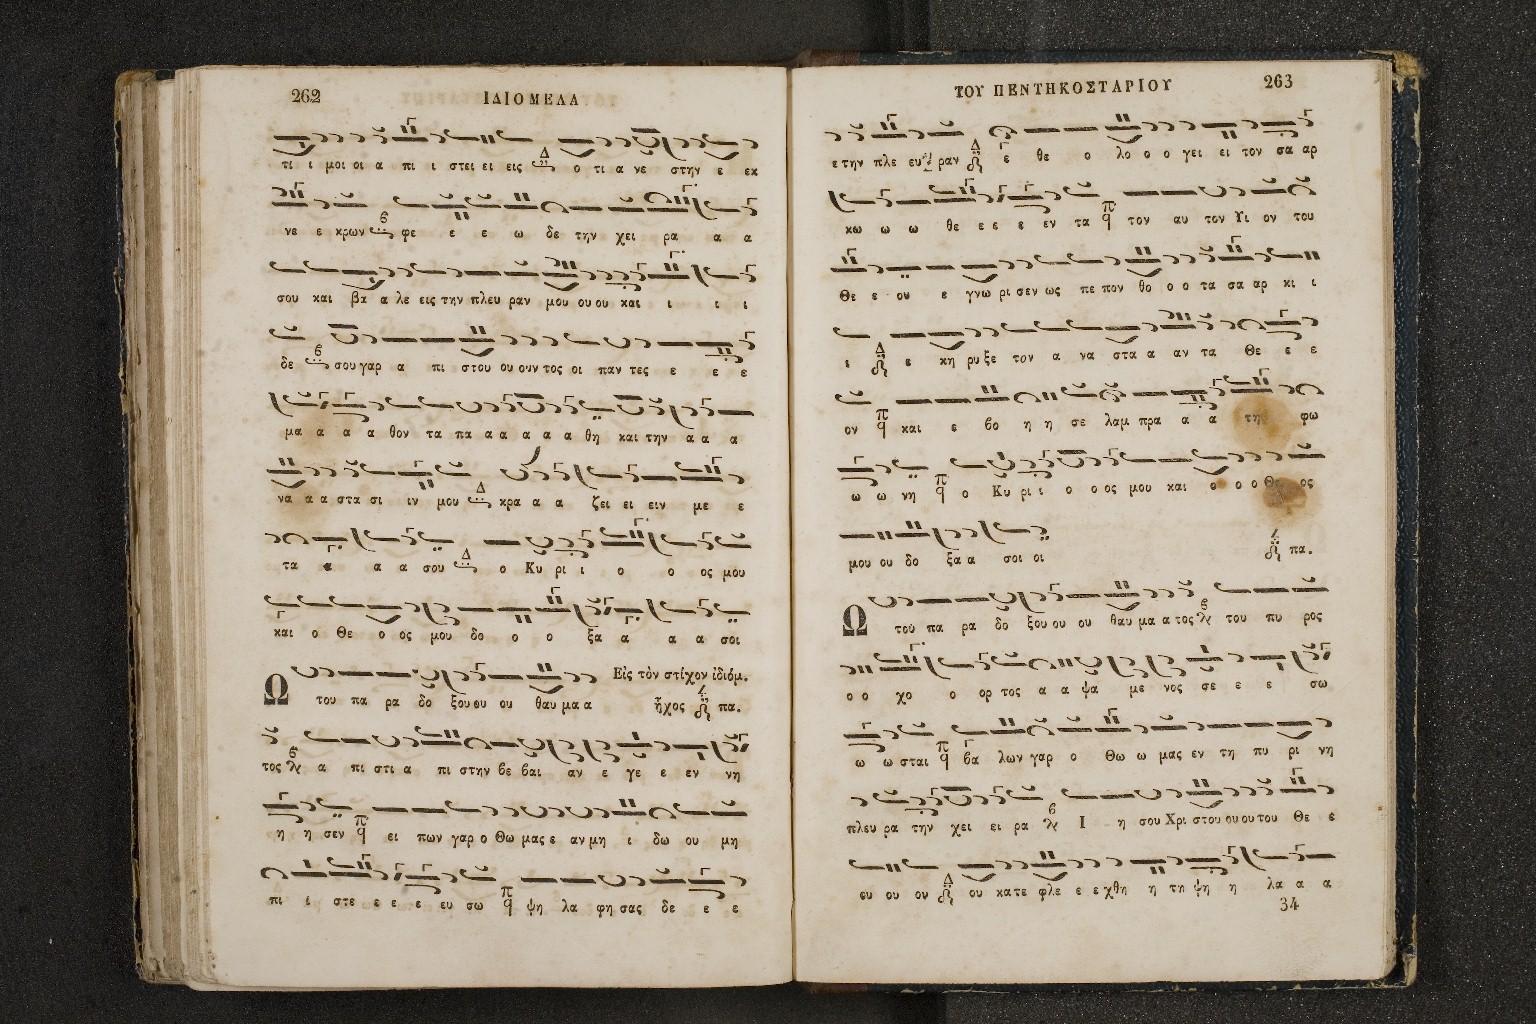 262 ΙΔΙΟΜΕΛΑ
τι ι μοι οι α πι ι στει ει εις Δ ο τι α νε στην ε εκ
νε ε κρων ϐ φε ε ε ω δε την χει ρα α α
σου και βα α λε εις την πλευ ραν μου ου ου και ι ι ι
δε ϐ σου γαρ α πι στου ου ουν τος οι παν τες ε ε ε
μα α α α θον τα πα α α α α α θη και την α α α
να α α στα σι ιν μου Δ κρα α α ζει ει ειν με ε
τα α α α σου Δ ο Κυ ρι ι ο ο ος μου
και ο Θε ο ος μου δο ο ο ξα α α α σοι
Εἰς τὸν στίχον ἰδιόμ.
Ω του πα ρα δο ξου ου ου θαυ μα α ἦχος πα.
τος ϐ α πι στι α πι στην ϐε ϐαι αν ε γε ε εν νη
η η σεν π q ει πων γαρ ο Θω μας ε αν μη ι δω ου μη
πι ι στε ε ε ε ευ σω π q ψη λα φη σας δε ε ε
ΤΟΥ ΠΕΝΤΗΚΟΣΤΑΡΙΟΥ 263
ε την πλε ευ ραν Δ ε θε ο λο ο ο γει ει τον σα αρ
κω ω ω θε ε ε ε εν τα π q τον αυ τον Υι ον του
Θε ε ου ε γνω ρι σεν ως πε πον θο ο ο τα σα αρ κι ι
ι Δ ε κη ρυ ξε τον α να στα α αν τα Θε ε ε
ον π q και ε ϐο η η σε λαμ πρα α α τη φω
ω ω νη π q ο Κυ ρι ι ο ο ος μου και ο ο ο Θε ος
μου ου δο ξα α σοι οι πα.
Ω τοῦ πα ρα δο ξου ου ου θαυ μα α τος ϐ του πυ ρος
ο ο χο ο ορ τος α α ψα με νος σε ε ε σω
ω ω σται π q ϐα λων γαρ ο Θω ω μας εν τη πυ ρι νη
πλευ ρα την χει ει ρα ϐ Ι η σου Χρι στου ου ου του Θε ε
ου ου ον Δ ου κα τε φλε ε ε χθη η τη ψη η λα α α
34